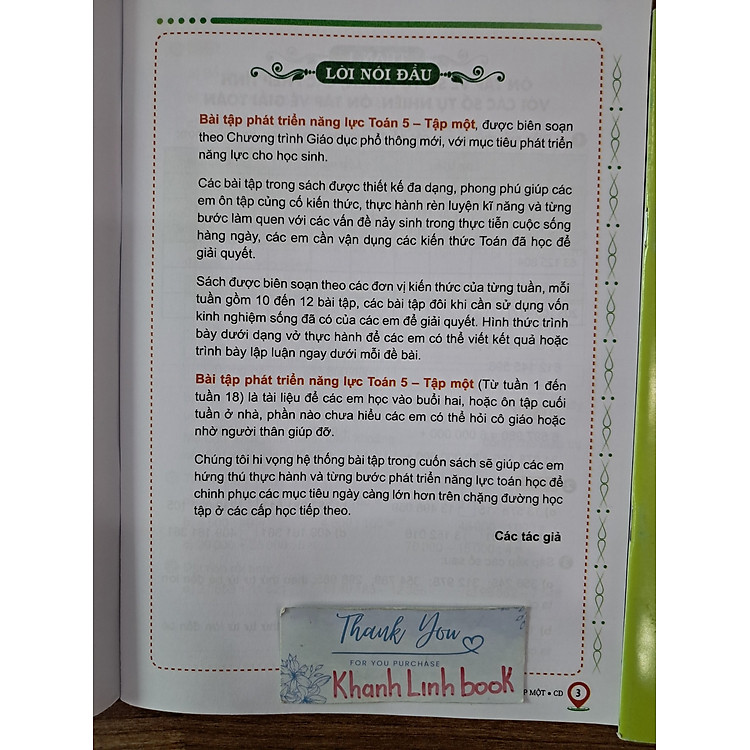 LỜI NÓI ĐẦU
Bài tập phát triển năng lực Toán 5 – Tập một, được biên soạn
theo Chương trình Giáo dục phổ thông mới, với mục tiêu phát triển
năng lực cho học sinh.
Các bài tập trong sách được thiết kế đa dạng, phong phú giúp các
em ôn tập củng cố kiến thức, thực hành rèn luyện kĩ năng và từng
bước làm quen với các vấn đề nảy sinh trong thực tiễn cuộc sống
hàng ngày, các em cần vận dụng các kiến thức Toán đã học để
giải quyết.
Sách được biên soạn theo các đơn vị kiến thức của từng tuần, mỗi
tuần gồm 10 đến 12 bài tập, các bài tập đôi khi cần sử dụng vốn
kinh nghiệm sống đã có của các em để giải quyết. Hình thức trình
bày dưới dạng vở thực hành để các em có thể viết kết quả hoặc
trình bày lập luận ngay dưới mỗi đề bài.
Bài tập phát triển năng lực Toán 5 – Tập một (Từ tuần 1 đến
tuần 18) là tài liệu để các em học vào buổi hai, hoặc ôn tập cuối
tuần ở nhà, phần nào chưa hiểu các em có thể hỏi cô giáo hoặc
nhờ người thân giúp đỡ.
Chúng tôi hi vọng hệ thống bài tập trong cuốn sách sẽ giúp các em
hứng thú thực hành và từng bước phát triển năng lực toán học để
chinh phục các mục tiêu ngày càng lớn hơn trên chặng đường học
tập ở các cấp học tiếp theo.
Các tác giả
Thank You
FOR YOU PURCHASE
Khanh Linh book
P MỘT • CD 3